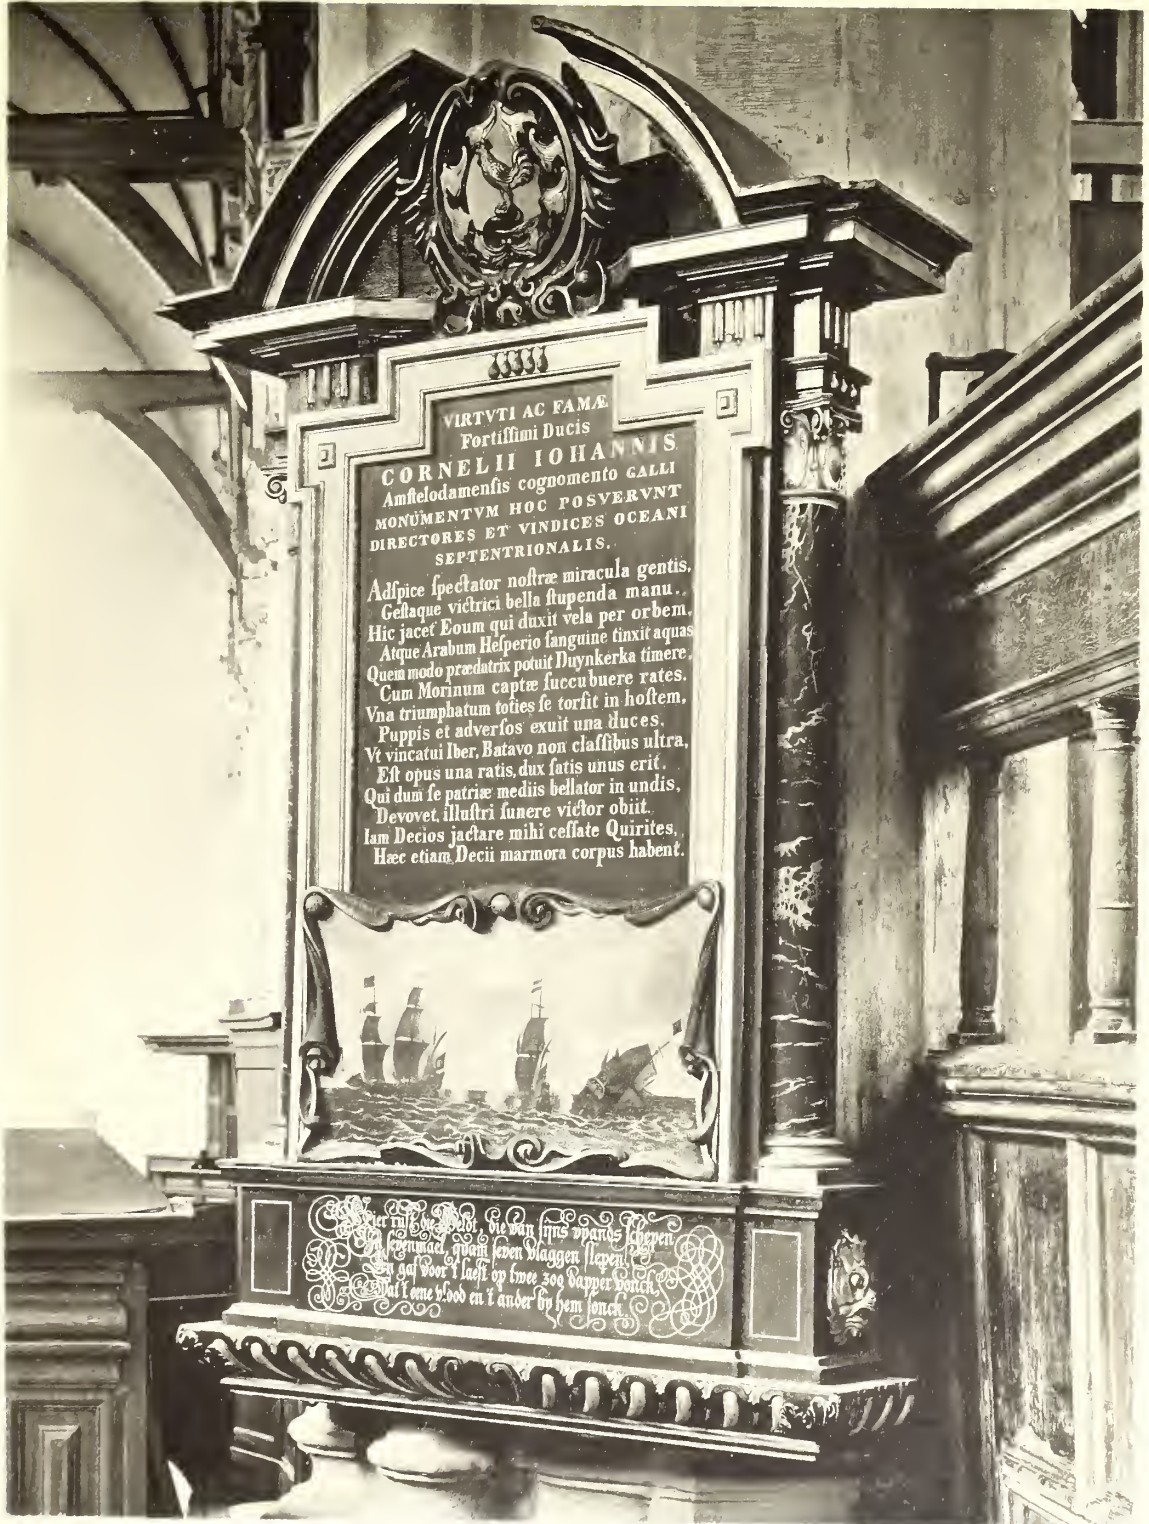 VIRTVTI AC FAMÆ
Fortiſſimi Ducis
CORNELII IOHANNIS
Amſtelodamenſis cognomento GALLI
MONUMENTVM HOC POSVERVNT
DIRECTORES ET VINDICES OCEANI
SEPTENTRIONALIS.
Adſpice ſpectator noſtræ miracula gentis,
Geſtaque victrici bella ſtupenda manu.
Hic jacet Eoum qui duxit vela per orbem,
Atque Arabum Heſperio ſanguine tinxit aquas
Quem modo prædatrix potuit Duynkerka timere,
Cum Morinum captæ ſuccubuere rates.
Vna triumphatum toties ſe torſit in hoſtem,
Puppis et adverſos exuit una duces.
Vt vincatui Iber, Batavo non claſſibus ultra,
Eſt opus una ratis, dux ſatis unus erit.
Qui dum ſe patriæ mediis bellator in undis,
Devovet, illuſtri funere victor obiit.
Iam Decios jactare mihi ceſſate Quirites,
Hæc etiam Decii marmora corpus habent.
Hier ruſt die Heldt, die van ſijns vyands ſchepen
In ſevenmael, quam ſeven vlaggen ſlepen
En gaf voor 't laeſt op twee zoo dapper vonck,
Dat 't eene vlood en 't ander by hem ſonck.